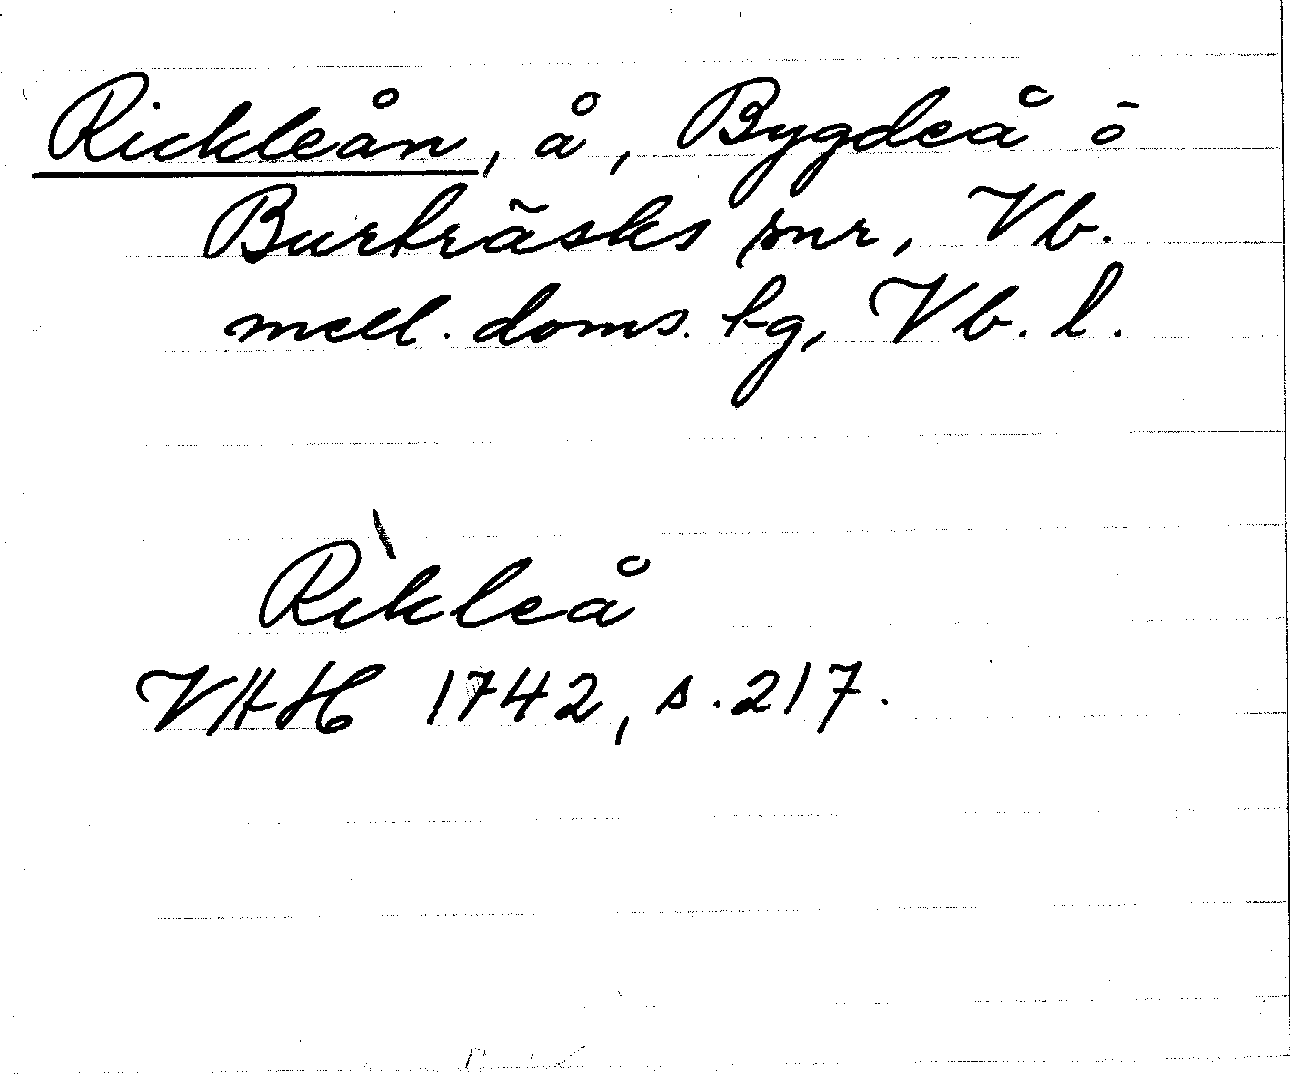 Rickleån, å, Bygdeå o
Burträsks snr, Vb.
mell. doms. tg, Vb. l.
Rikleå
VHH 1742, s. 217.